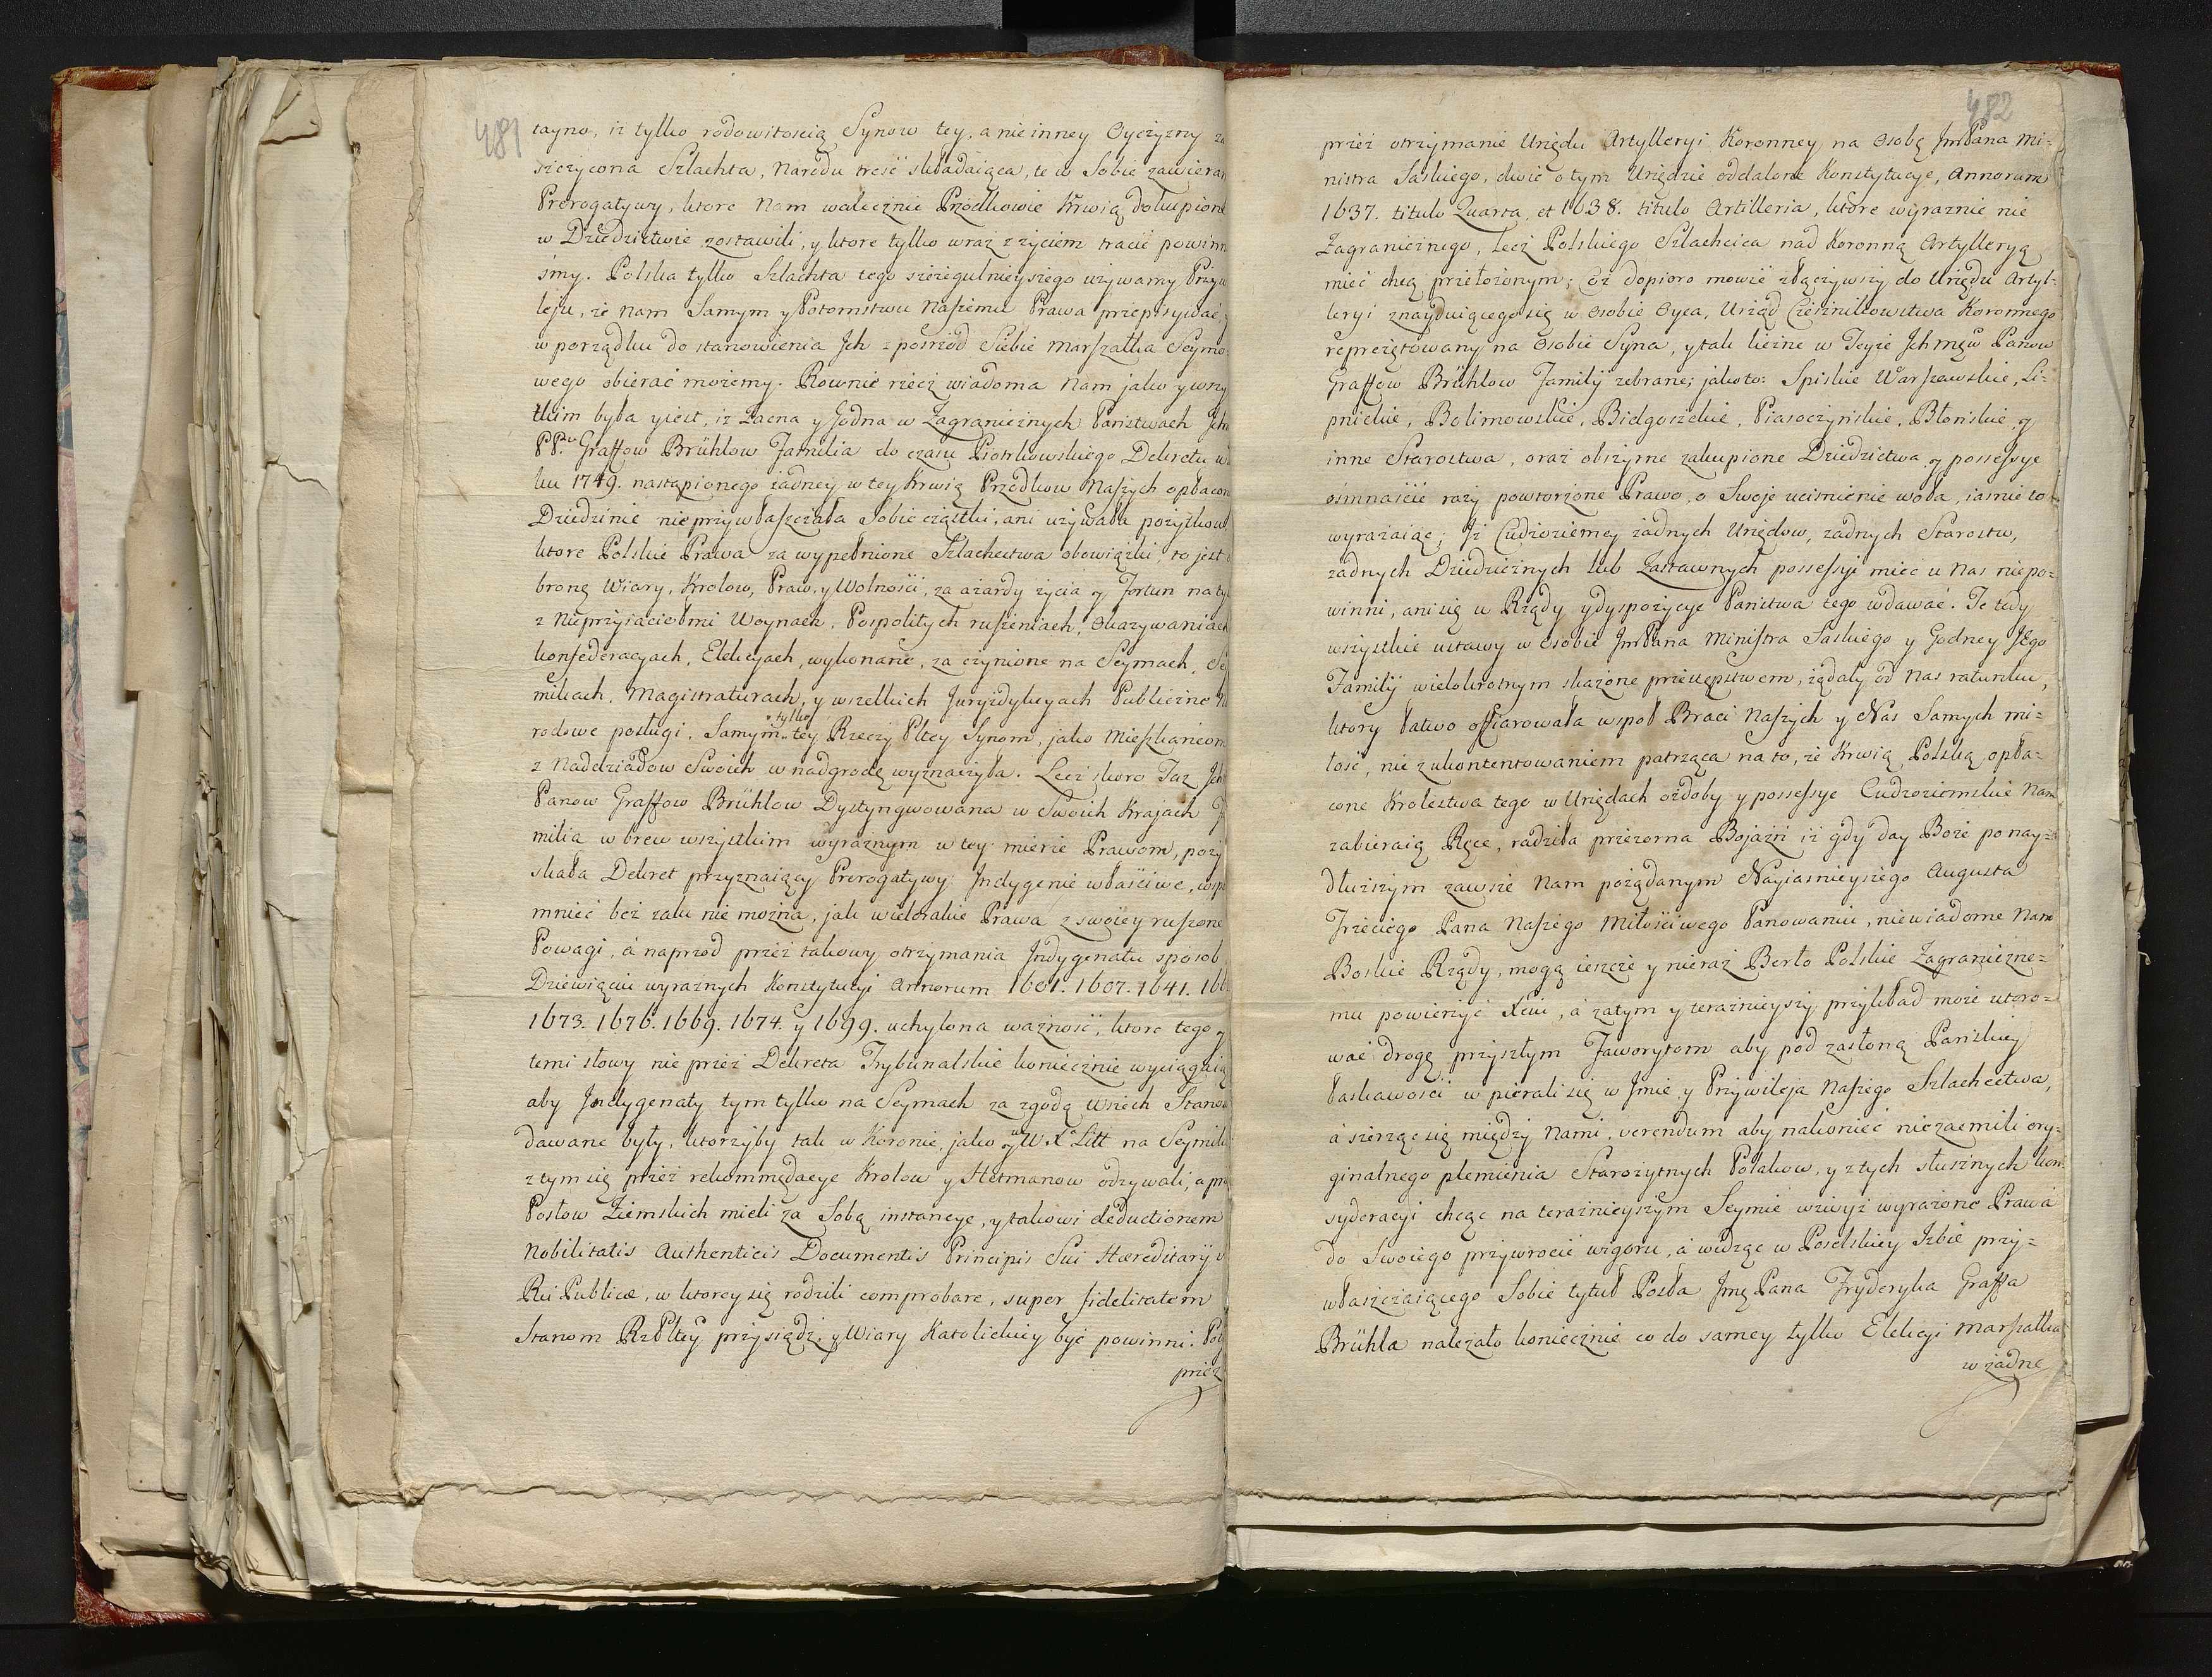 481
tayno, iż tylko rodowitoscią Synow tey, a nie inney Oyczyzny za
szczycona Szlachta, Narodu treść składaiąca, te w Sobie zawiera
Prerogatywy, ktore Nam walecznie Przodkowie Krwią dokupione
w Dziedzictwie zostawili, y ktore tylko wraz z życiem tracić powinni
śmy. Polska tylko Szlachta tego szczegulnieyszego używamy Przywi
leju, że Nam Samym y Potomstwu Naszemu Prawa przepisywać, y
w porządku do stanowienia Ich z posrzod Siebie Marszałka Seymo
wego obierać możemy. Rownie rzecz wiadoma Nam jako y wszy
tkim była y iest, iż Zacna y Godna w Zagranicznych Państwach Ich
PP. Graffow Brühlow Familia do czasu Piotrkowskiego Dekretu w
ku 1749. nastąpionego żadney w tey Krwią Przodkow Naszych opłacon
Dziedzinie nieprzywłaszczała Sobie cząstki, ani używała pożytkow,
ktore Polskie Prawa za wypełnione Szlachectwa obowiązki, to jest o
bronę Wiary, Krolow, Praw, y Wolności, za azardy życia y Fortun na ty
z Nieprzyiaciołmi Woynach, Pospolitych ruszeniach, Okazywaniach
konfederacyach, Elekcyach, wykonane, za czynione na Seymach, Se
mikach, Magistraturach, y wszelkich Juryzdykcyach Publiczne Na
rodowe posługi, Samym tylko tey Rzeczy Pltey Synom, jako Mieszkańcom
z Naddziadow Swoich w nadgrodę wyznaczyła. Lecz skoro Taz Ich
Panow Graffow Brühlow Dystyngwowana w Swoich Krajach Fa
milia w brew wszystkim wyraznym w tey mierze Prawom, pozy
skała Dekret przyznaiący Prerogatywy Indygenie właściwe, wspo
mnieć bez zalu nie można, jak wielorakie Prawa z swojey ruszone
Powagi, á naprzod przez takowy otrzymania Indygenatu sposob
Dziewiąciu wyraznych Konstytucyi Annorum 1601. 1607. 1641. 166
1673. 1676. 1669. 1674. y 1699. uchylona ważność, ktore tego y
temi słowy nie przez Dekreta Trybunalskie koniecznie wyciągaią
aby Indygenaty tym tylko na Seymach za zgodą wszech Stanow
dawane były, ktorzyby tak w Koronie, jako y W X Litt na Seymik
z tym się przez rekommędacye Krolow y Hetmanow odzywali, a prz
Posłow Ziemskich mieli za Sobą instancye, y takowi deductionem
Nobilitatis Authenticis Documentis Principis Sui Hæreditarij v
Rei Publicæ, w ktorey się rodzili comprobare, super fidelitatem
Stanom RzPltey przysiądz, y Wiary Katolickiey być powinni. Po
przez
482
przez otrzymanie Urzędu Artylleryi Koronney na Osobę JmPana Mi=
nistra Saskiego, dwie o tym Urzędzie oddalone Konstytucye, Annorum
1637. titulo Quarta, et 1638. titulo Artilleria, ktore wyraznie nie
Zagranicznego, Lecz Polskiego Szlachcica nad Koronną Artylleryą
mieć chcą przełożonym; Coż dopioro mowić złączywszy do Urzędu Artyl=
leryi znayduiącego się w Osobie Oyca, Urząd Cześnikowstwa Koronnego
reprezętowany na Osobie Syna, y tak liczne w Teyże Ichmęw Panow
Graffow Brühlow Familij zebrane; jako to: Spiskie Warszawskie, Li=
pnickie, Bolimowskie, Bidgoszckie, Piasoczyńskie, Błonskie, y
inne Starostwa, oraz obszyrne zakupione Dziedzictwa y possessye
ośmnaście razy powtorzone Prawo, o Swoje uciśnienie woła, iasnie to
wyrazaiąc; Iż Cudzoziemcy żadnych Urzędow, zadnych Starostw,
żadnych Dziedzicznych lub Zastawnych possessyi mieć u Nas niepo=
winni, ani się u Rządy y dyspozycye Państwa tego wdawać. Te tedy
wszystkie ustawy w Osobie JmPana Ministra Saskiego y Godney Jego
Familij wielokrotnym skażone przestępstwem, żądały od Nas ratunku,
ktory łatwo offiarowała wspoł Braci Naszych y Nas Samych mi=
łość, nie z ukontentowaniem patrząca na to, że Krwią Polską opła=
cone Krolestwa tego w Urzędach ozdoby y possessye Cudzoziemskie Nam
zabieraią Ręce, radziła przezorna Bojaźń iż gdy day Boże po nay=
dłuższym zawsze Nam pożądanym Nayiasnieyszego Augusta
Trzeciego Pana Naszego Miłościwego Panowaniu, niewiadome Nam
Boskie Rządy, mogą ieszcze y nieraz Berło Polskie Zagraniczne=
mu powierzyć Xciu, á zatym y teraznieyszy przykład może utoro=
wać drogę przyszłym Faworytom aby pod zasłoną Pańskiey
łaskawości w pierali się w Jmie y Przywileja Naszego Szlachectwa,
á szerząc się między Nami, verendum aby nakoniec nie zacmili ory=
ginalnego plemienia Starożytnych Polakow, y z tych słusznych kon=
syderacyi chcąc na teraznieyszym Seymie wzwyż wyrażone Prawa
do Swoiego przywrocić wigoru, á widząc w Poselskiey Izbie przy=
właszczaiącego Sobie tytuł Posła Jmę Pana Fryderyka Graffa
Brühla należało koniecznie co do samey tylko Elekcyi Marszałka
w żadne